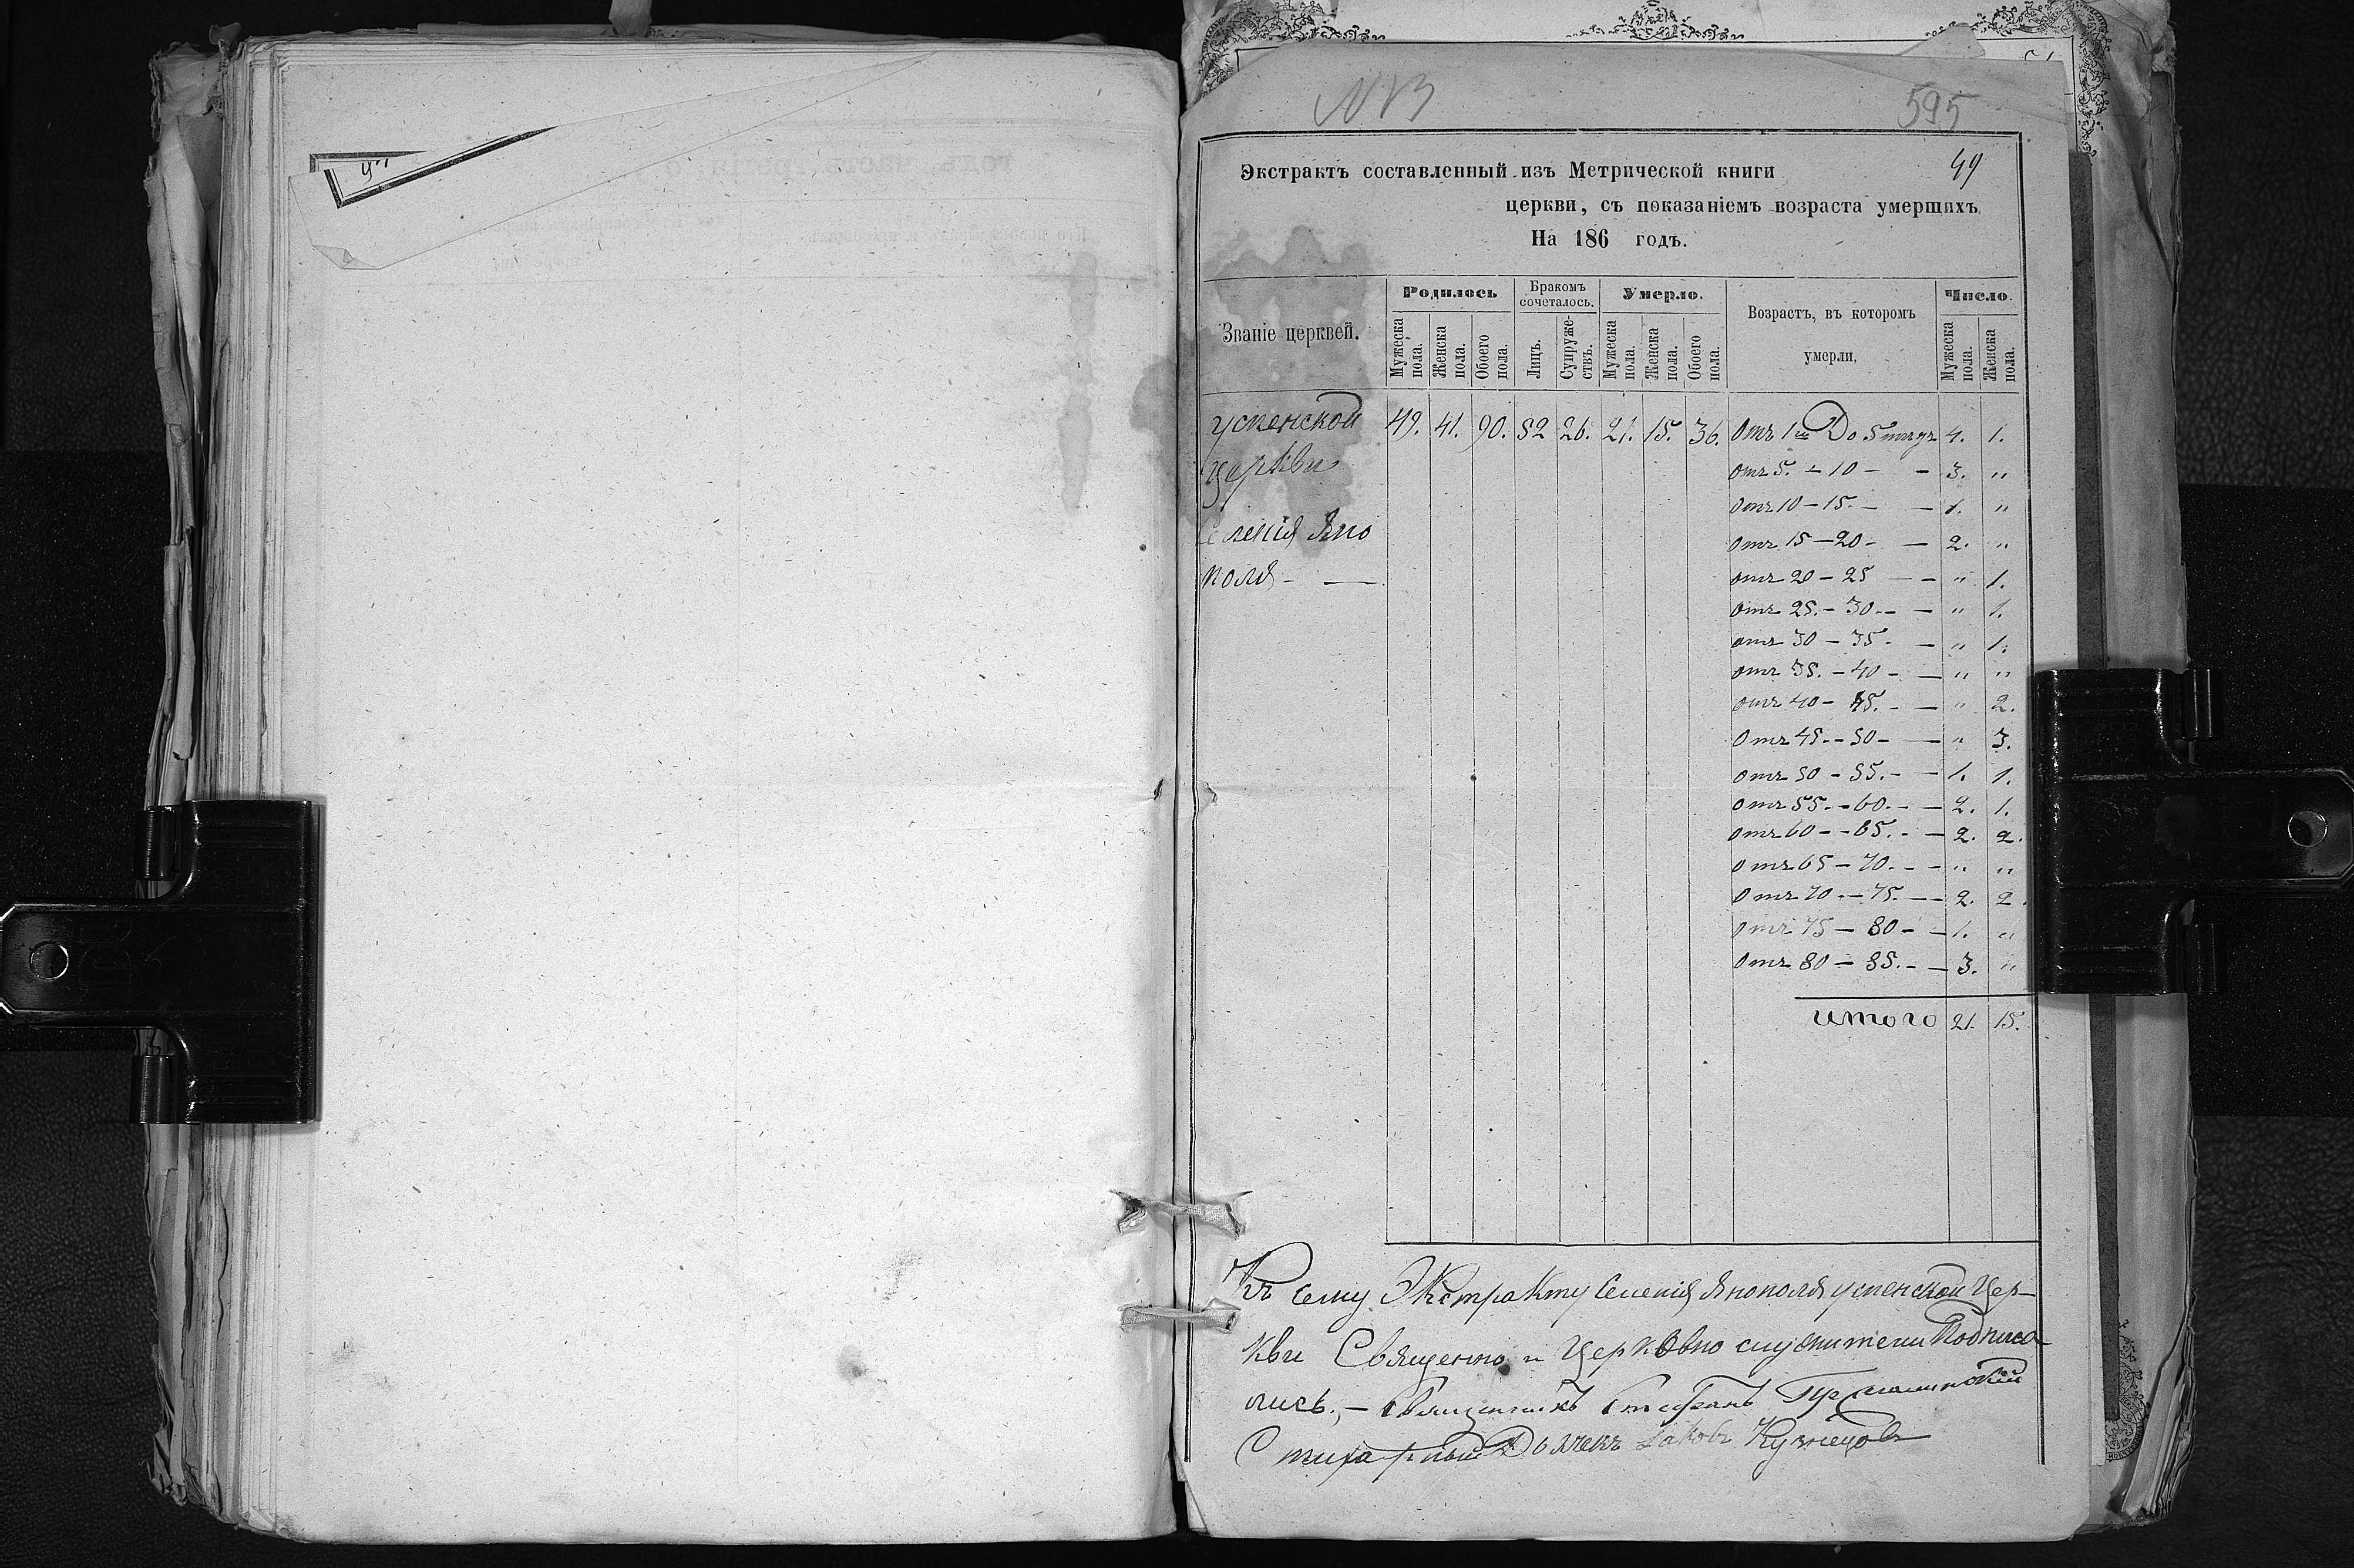 NB
595
49
Экстрактъ составленный изъ Метрической книги
церкви, съ показаніемъ возраста умершихъ
На 186 годъ.
Званіе церквей.
Родилось
Бракомъ сочеталось.
Умерло.
Возрастъ, въ которомъ умерли.
Число.
Мужеска пола.
Женска пола.
Обоего пола.
Лицъ.
Супружествъ.
Мужеска пола.
Женска пола.
Обоего пола.
Мужеска пола.
Женска пола.
Успенской 49. 41. 90. 52 26. 21. 15. 36. Отъ 1го До 5 4. 1.
Церкви отъ 5. – 10 – – 3. „
отъ 10 – 15. – – 1. „
Селенія Яно отъ 15 – 20 – – 2. „
поля – — отъ 20 – 25 – – „ 1.
отъ 25. – 30 – – „ 1.
отъ 30 – 35 – – „ 1.
отъ 35. – 40 – – „ „
отъ 40 – 45. – – „ 2.
отъ 45 – 50 – – „ 3.
отъ 50 – 55. – – 1. 1.
отъ 55. – 60. – – 2. 1.
отъ 60 – 65. – – 2. 2.
отъ 65 – 70. – – „ „
отъ 70 – 75. – – 2. 2.
отъ 75 – 80 – – 1. „
отъ 80 – 85. – – 3. „
итого 21. 15.
Къ сему Экстракту Селенія Янополя успенской Цер-
кви Священно и Церковно служители Подписа
лись. – Священникъ Стефанъ
Стихарный Дьячекъ Іаковъ Кузнецовъ